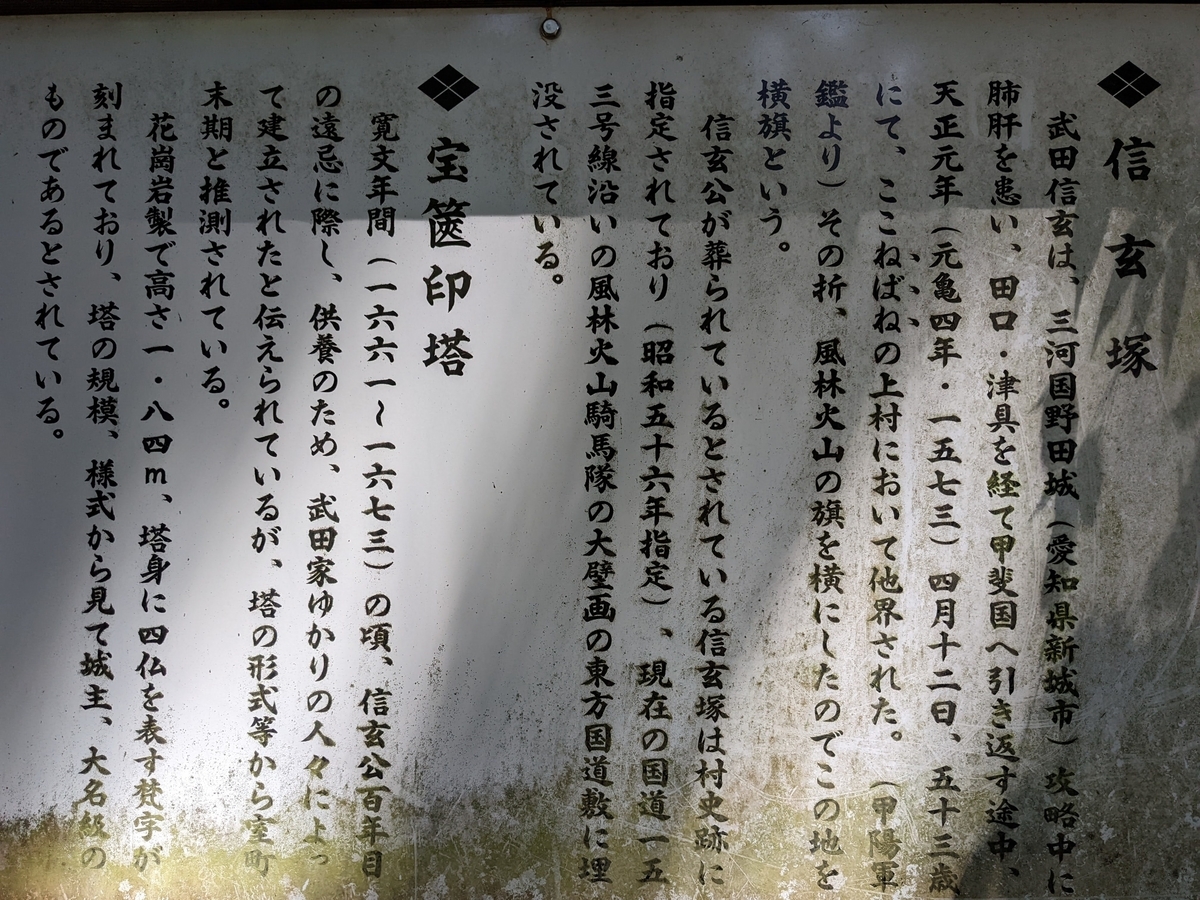 信玄塚
武田信玄は、三河国野田城（愛知県新城市）攻略中に
肺肝を患い、田口・津具を経て甲斐国へ引き返す途中、
天正元年（元亀四年・一五七三）四月十二日、五十三歳
にて、ここねばねの上村において他界された。（甲陽軍
鑑より）その折、風林火山の旗を横にしたのでこの地を
横旗という。
信玄公が葬られているとされている信玄塚は村史跡に
指定されており（昭和五十六年指定）、現在の国道一五
三号線沿いの風林火山騎馬隊の大壁画の東方国道敷に埋
没されている。
宝篋印塔
寛文年間（一六六一～一六七三）の頃、信玄公百年目
の遠忌に際し、供養のため、武田家ゆかりの人々によっ
て建立されたと伝えられているが、塔の形式等から室町
末期と推測されている。
花崗岩製で高さ一・八四m、塔身に四仏を表す梵字が
刻まれており、塔の規模、様式から見て城主、大名級の
ものであるとされている。